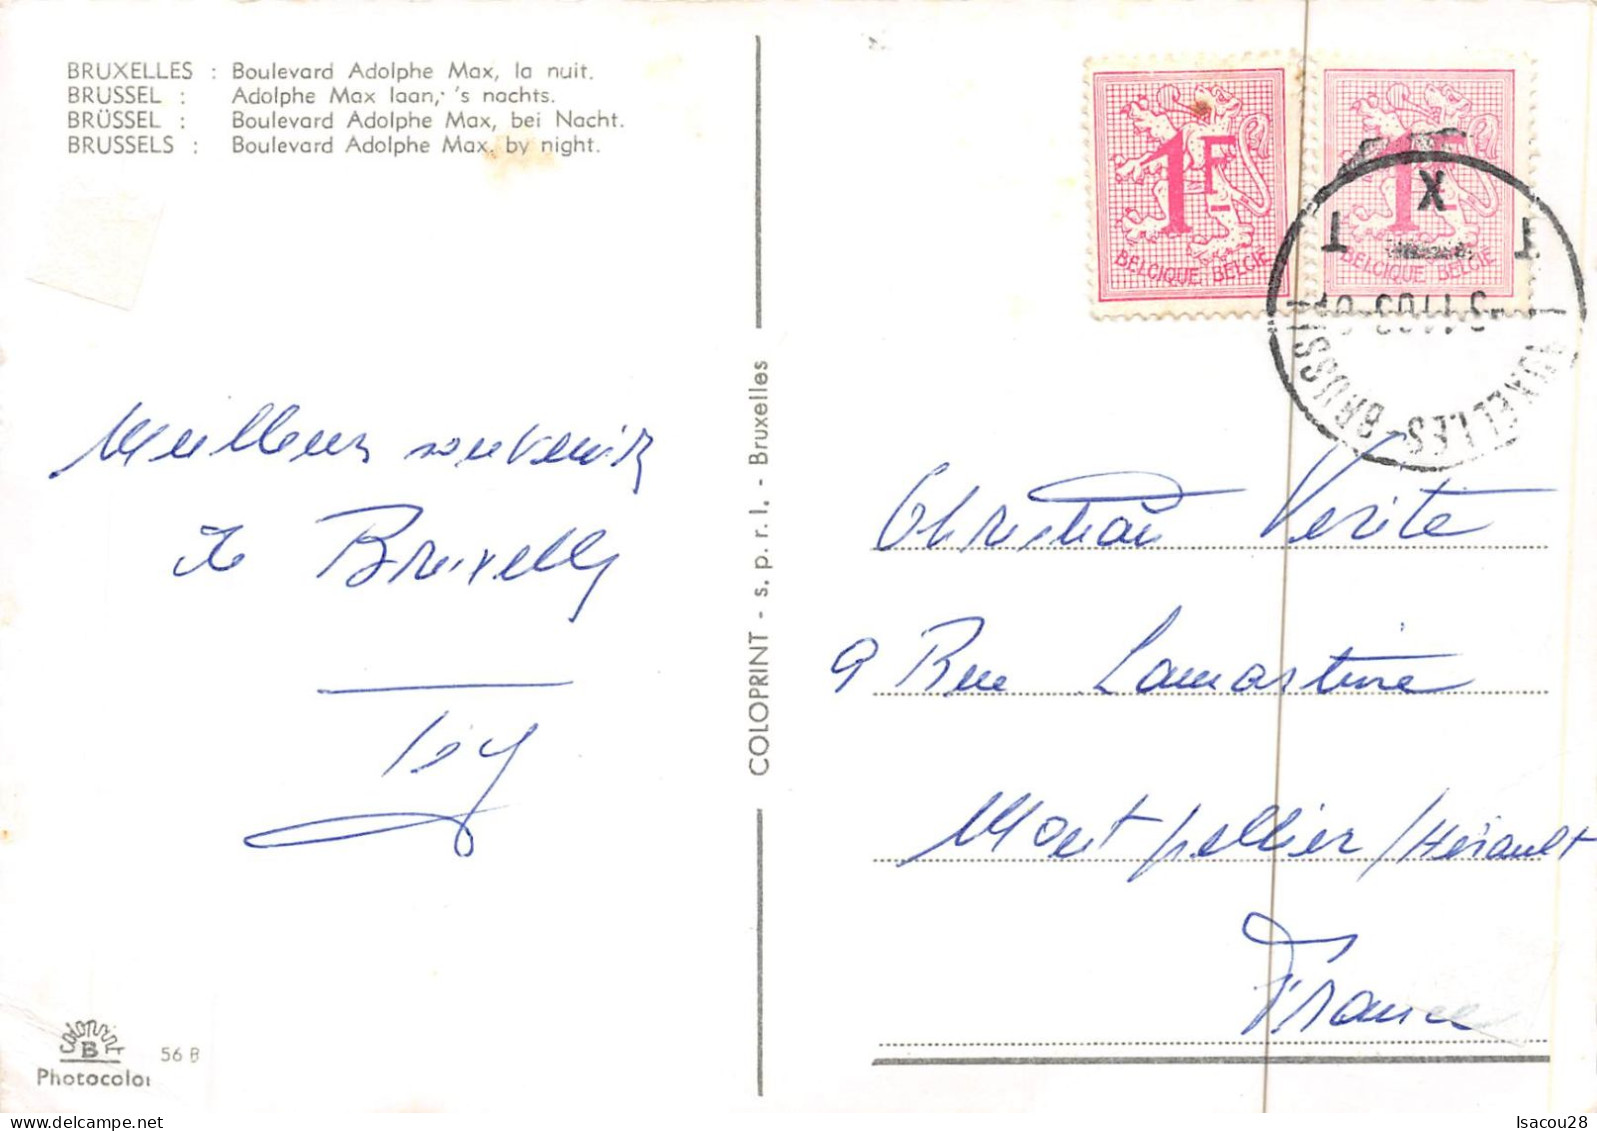 BRUXELLES : Boulevard Adolphe Max, la nuit.
BRUSSEL : Adolphe Max laan, 's nachts.
BRÜSSEL : Boulevard Adolphe Max, bei Nacht.
BRUSSELS : Boulevard Adolphe Max, by night.
Meilleurs souvenirs
de Bruxelles
COLOPRINT - s. p. r. l. - Bruxelles
1F
BELGIQUE BELGIË
1F
BELGIQUE BELGIË
X
T T
BRUXELLES-BRUSSEL
Christian Verite
9 Rue Lamartine
Montpellier / Hérault
France
coloprint
B
Photocolor
56 B
Isacou28